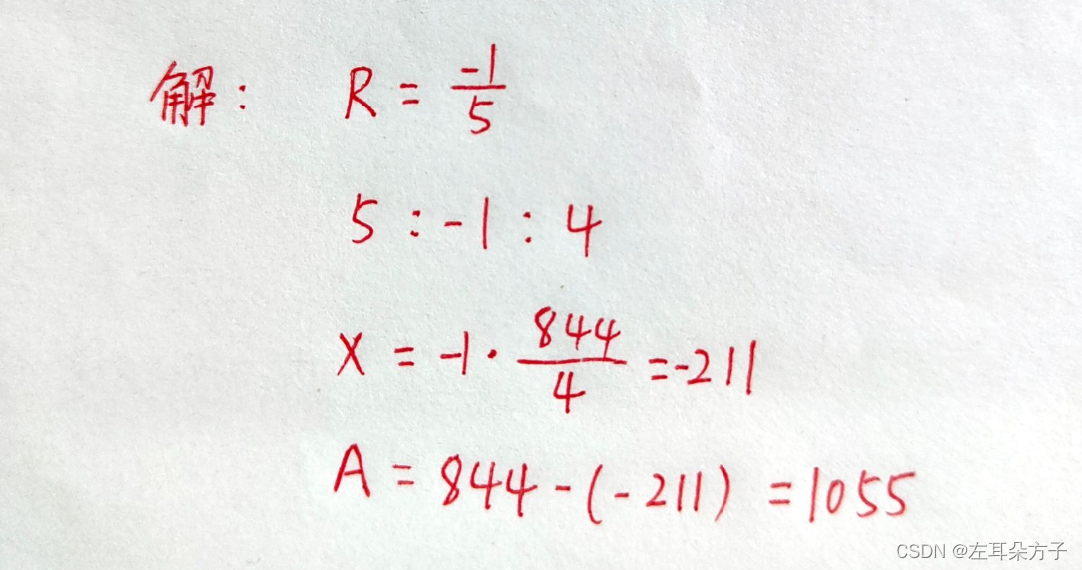 解: R = -1/5
5 : -1 : 4
X = -1 · 844/4 = -211
A = 844 - (-211) = 1055
CSDN @左耳朵方子